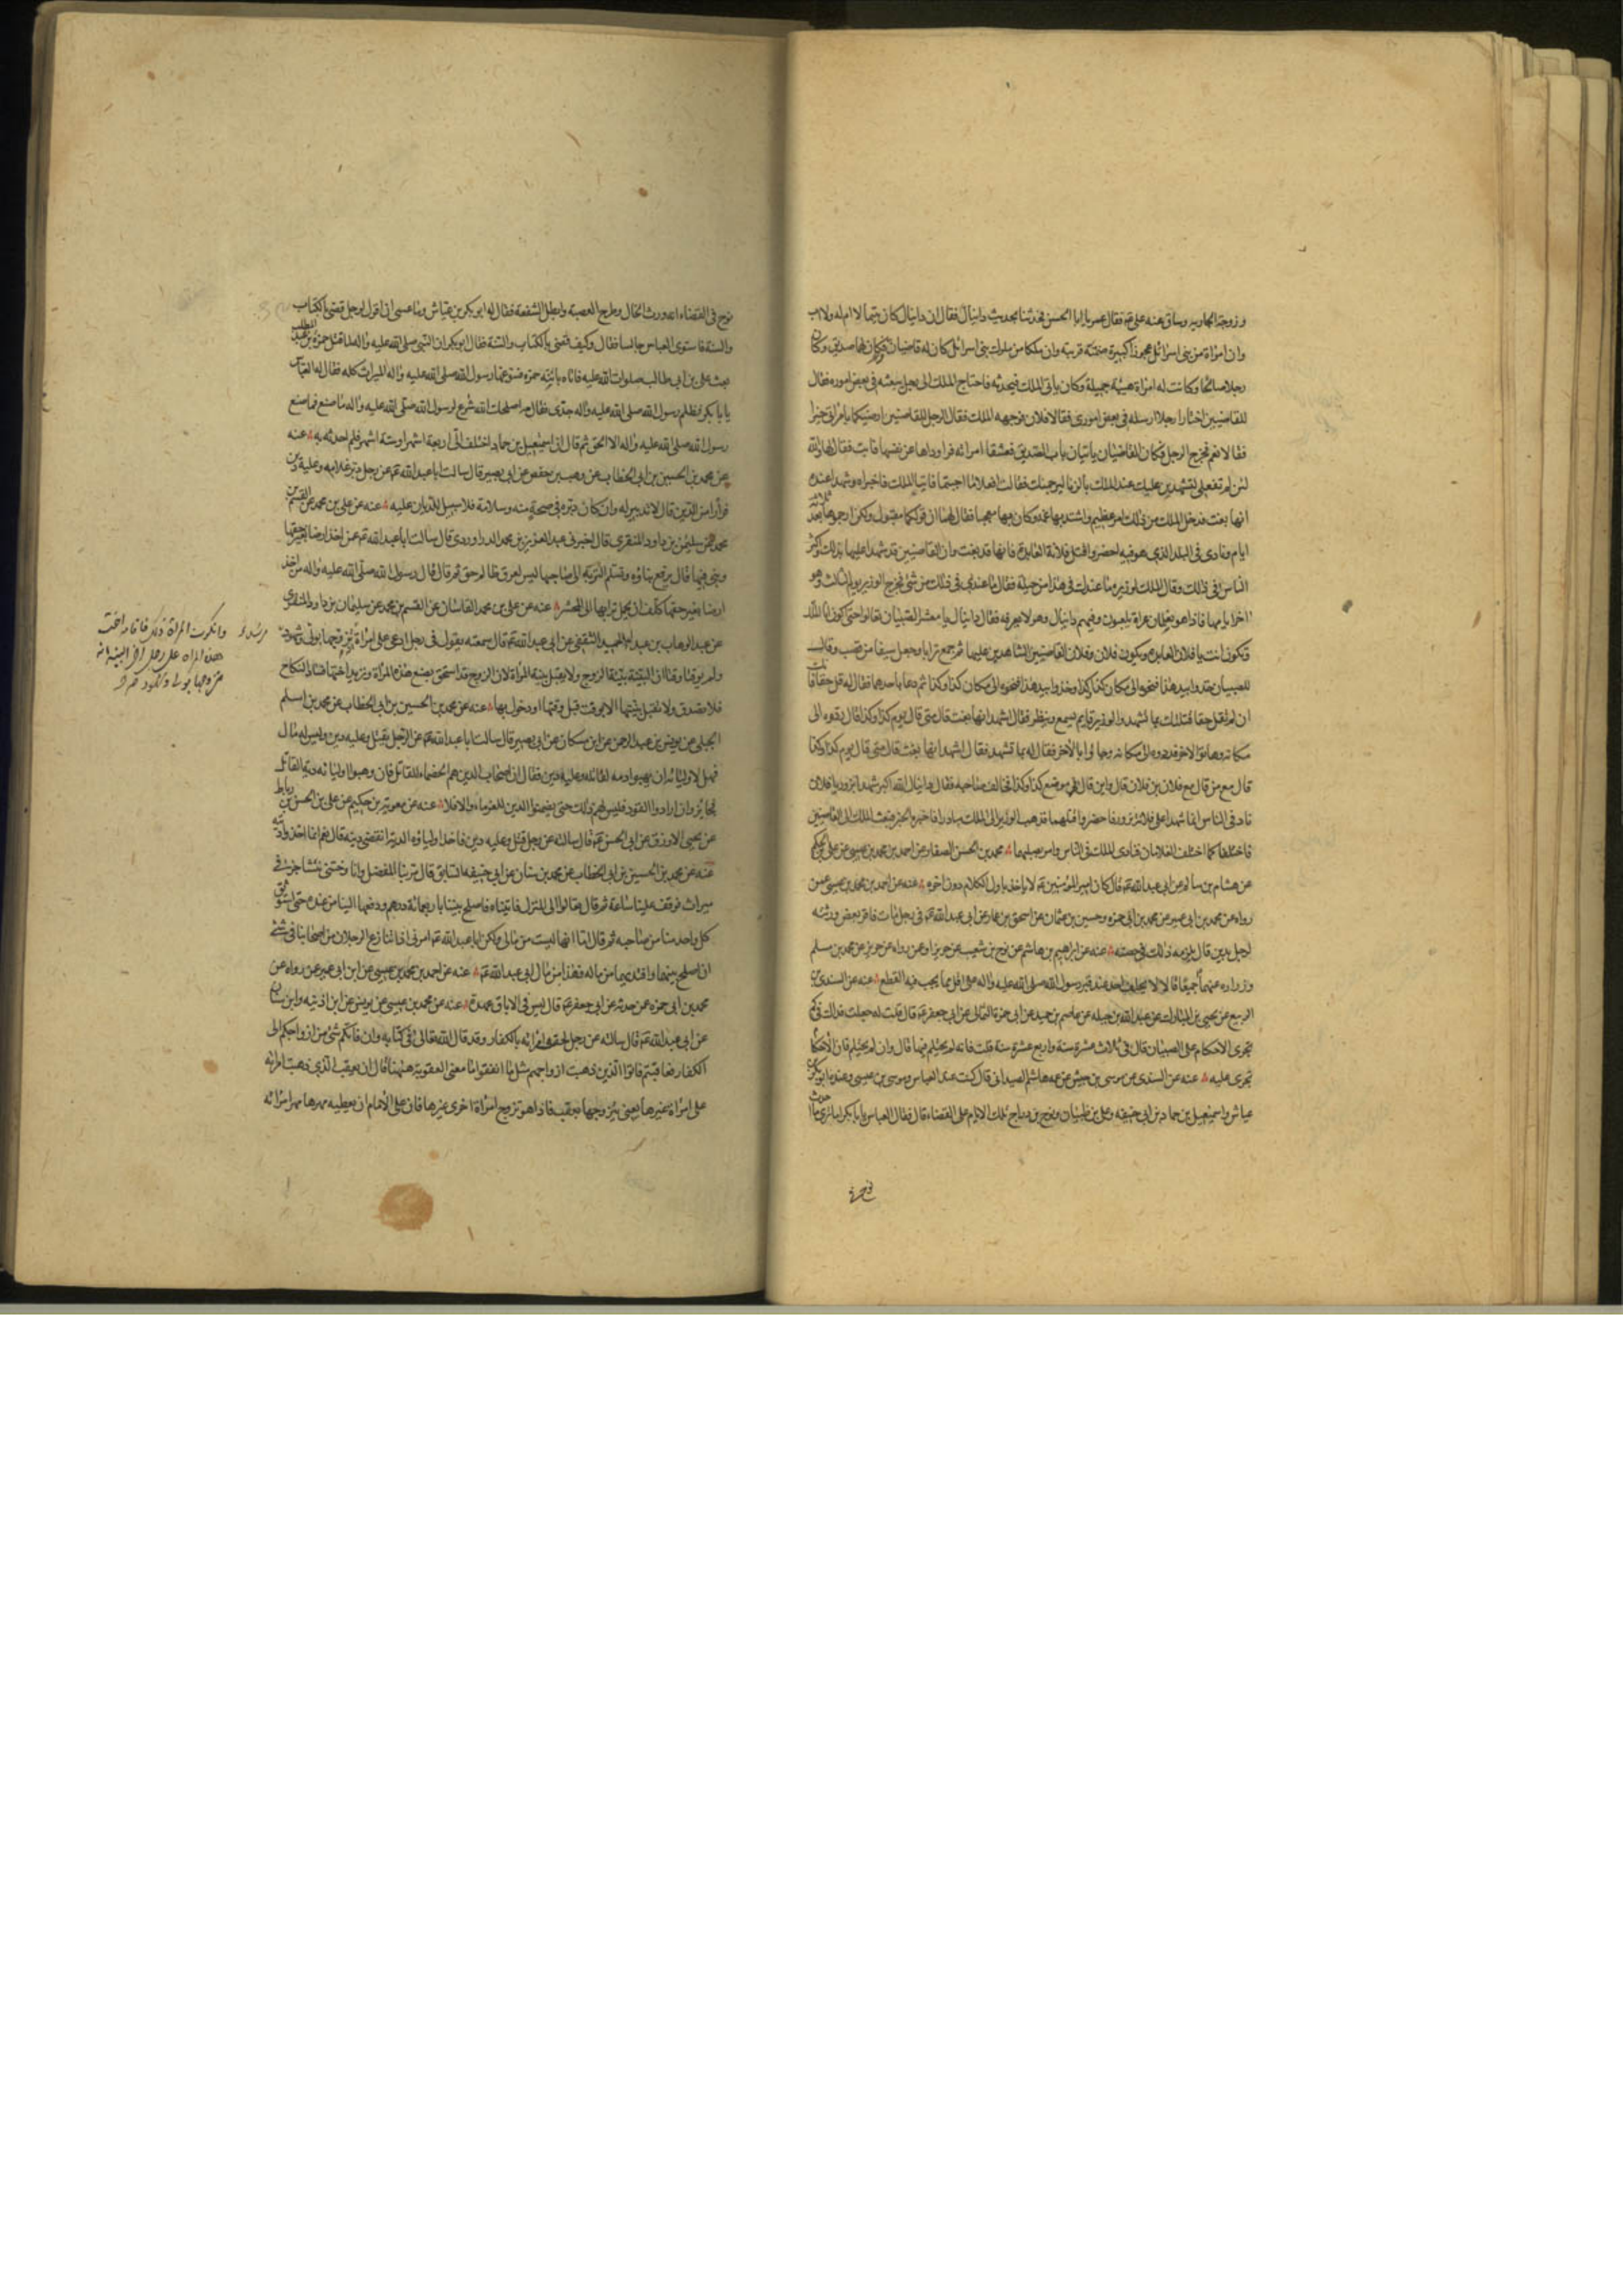 وزوجته الجارية وساق عنه على عم فقال عمر يا ابا الحسن فحدثنا بحديث دانيال فقال ان دانيال كان يتيما لا ام له ولا اب
وان امراة من بنى اسرائيل عجوزا كبيرة ضمته فربته وان ملكا من ملوك بنى اسرائيل كان له قاضيان وكان لهما صديق وكان
رجلا صالحا وكانت له امراة هيئة جميلة وكان يأتى الملك فيحدثه فاحتاج الملك الى رجل يبعثه فى بعض اموره فقال
للقاضيين اختارا رجلا ارسله فى بعض امورى فقالا فلان فوجهه الملك فقال الرجل للقاضيين اوصيكما بامراتى خيرا
فقالا نعم فخرج الرجل فكان القاضيان ياتيان باب الصديق فعشقا امراته فراوداها عن نفسها فابت فقالا لها والله
لئن لم تفعلى لنشهدن عليك عند الملك بالزنا ليرجمنك فقالت افعلا ما احببتما فاتيا الملك فاخبراه وشهدا عنده
انها بغت فدخل الملك من ذلك امر عظيم واشتد بها غمه وكان بها معجبا فقال لهما ان قولكما مقبول ولكن ارجموها بعد ثلاثة
ايام ونادى فى البلد الذى هو فيه احضروا قتل فلانة العابدة فانها قد بغت وان القاضيين قد شهدا عليها بذلك واكثر
الناس فى ذلك وقال الملك لوزيره ما عندك فى هذا من حيلة فقال ما عندى فى ذلك من شئ فخرج الوزير يوم الثالث وهو
اخر ايامها فاذا هو بغلمان عراة يلعبون وفيهم دانيال وهو لا يعرفه فقال دانيال يا معشر الصبيان تعالوا حتى اكون انا الملك
وتكون انت يا فلان العابدة ويكون فلان وفلان القاضيين الشاهدين عليها ثم جمع ترابا وجعل سيفا من قصب وقال
للصبيان خذوا بيد هذا فنحوه الى مكان كذا وكذا وخذوا بيد هذا فنحوه الى مكان كذا وكذا ثم دعا باحدهما فقال له قل حقا فانك
ان لم تقل حقا قتلتك بما تشهد والوزير قايم يسمع وينظر فقال اشهد انها بغت قال متى قال يوم كذا وكذا قال ردوه الى
مكانه وهاتوا الاخر فردوه الى مكانه وجاؤا بالأخر فقال له بما تشهد فقال اشهد انها بغت قال متى قال يوم كذا وكذا
قال مع من قال مع فلان بن فلان قال واين قال فى موضع كذا وكذا فخالف صاحبه فقال دانيال الله اكبر شهدا بزور يا فلان
ناد فى الناس انما شهدا على فلانة بزور فاحضروا قتلهما فذهب الوزير الى الملك مبادرا فاخبره الخبر فبعث الملك الى القاضيين
فاختلفا كما اختلف الغلامان فنادى الملك فى الناس وامر بقتلهما محمد بن الحسن الصفار عن احمد بن محمد بن عيسى عن على بن الحكم
عن هشام بن سالم عن ابى عبد الله عم قال كان امير المؤمنين عم لا ياخذ باول الكلام دون اخره عنه عن احمد بن محمد بن عيسى عمن
رواه عن محمد بن ابى عمير عن محمد بن ابى حمزه وحسين بن عثمان عن اسحق بن عمار عن ابى عبد الله عم فى رجل مات فاقر بعض ورثته
لرجل بدين قال يلزمه ذلك فى حصته عنه عن ابراهيم بن هاشم عن نوح بن شعيب عن حريز او عمن رواه عن حريز عن محمد بن مسلم
وزراره عنهما جميعا قالا لا يحلف احد عند قبر رسول الله صلى الله عليه واله على اقل مما يجب فيه القطع عنه عن السندى بن
الربيع عن يحيى بن المبارك عن عبد الله بن جبله عن عاصم بن حميد عن ابى حمزة الثمالى عن ابى جعفر عم قال قلت له جعلت فداك فى كم
تجرى الاحكام على الصبيان قال فى ثلاث عشرة سنة واربع عشرة سنة قلت فانه لم يحتلم فيها قال وان لم يحتلم فان الاحكام
تجرى عليه عنه عن السندى عن موسى بن حبيش عن عمه هاشم الصيدانى قال كنت عند العباس وموسى بن عيسى وعنده ابو بكر بن
عياش واسمعيل بن حماد بن ابى حنيفه وعلى بن ظبيان ونوح بن دراج تلك الايام على القضاء قال فقال العباس يا ابا بكر اما ترى ما احدث
نوح فى
نوح فى القضاء انه ورث الخال وطرح العصبة وابطل الشفعة فقال له ابو بكر بن عياش وما عسى ان اقول لرجل قضى بالكتاب
والسنة فاستوى العباس جالسا فقال وكيف قضى بالكتاب والسنة فقال ابو بكر ان النبى صلى الله عليه واله لما قتل حمزه بن عبد المطلب
بعث على بن ابى طالب صلوات الله عليه فاتاه بابنة حمزه فسوغها رسول الله صلى الله عليه واله الميراث كله فقال له العباس
يا ابا بكر فظلم رسول الله صلى الله عليه واله جدى فقال مه اصلحك الله شرع لرسول الله صلى الله عليه واله ما صنع فما صنع
رسول الله صلى الله عليه واله الا الحق ثم قال ان اسمعيل بن حماد اختلف الى اربعة اشهر او ستة اشهر فلم احدثه به عنه
عن محمد بن الحسين بن ابى الخطاب عن وهيب بن حفص عن ابى بصير قال سالت ابا عبد الله عم عن رجل دبر غلامه وعليه دين
فرارا من الدين قال لا تدبير له وان كان دبره فى صحة منه وسلامة فلا سبيل للديان عليه عنه عن على بن محمد عن القسم بن
محمد عن سليمن بن داود المنقرى قال اخبرنى عبد العزيز بن محمد الدراوردى قال سالت ابا عبد الله عم عمن اخذ ارضا بغير حقها
وبنى فيها قال يرفع بناؤه وتسلم التربة الى صاحبها ليس لعرق ظالم حق ثم قال قال رسول الله صلى الله عليه واله من اخذ
ارضا بغير حقها كلف ان يحمل ترابها الى المحشر عنه عن على بن محمد القاسانى عن القسم بن محمد عن سليمان بن داود المنقرى
عن عبد الوهاب بن عبد الحميد الثقفى عن ابى عبد الله عم قال سمعته يقول فى رجل ادعى على امراة انه تزوجها بولى وشهود
ولم يوقتا وقتا ان البينة بينة الزوج ولا يقبل بينة المراة لان الزوج قد استحق بضع هذه المراة وتريد اختها فساد النكاح
فلا تصدق ولا تقبل بينتها الا بوقت قبل وقتها او دخول بها عنه عن محمد بن الحسين بن ابى الخطاب عن محمد بن اسلم
الجبلى عن يونس بن عبد الرحمن عن ابن مسكان عن ابى بصير قال سالت ابا عبد الله عم عن الرجل يقتل وعليه دين وليس له مال
فهل لاوليائه ان يهبوا دمه لقاتله وعليه دين فقال ان اصحاب الدين هم الخصماء للقاتل فان وهبوا اوليائه دية القاتل
فجايز وان ارادوا القود فليس لهم ذلك حتى يضمنوا الدين للغرماء والا فلا عنه عن معوية بن حكيم عن على بن الحسن بن رباط
عن يحيى الازرق عن ابى الحسن عم قال سالته عن رجل قتل وعليه دين فاخذ اولياؤه الدية اتقضى دينه قال نعم انما اخذوا ديته
عنه عن محمد بن الحسين بن ابى الخطاب عن محمد بن سنان عن ابى حنيفه السابق قال مر بنا المفضل وانا وختنى نتشاجر فى
ميراث فوقف علينا ساعة ثم قال تعالوا الى المنزل فاتيناه فاصلح بيننا باربعمائة درهم ودفعها الينا من عنده حتى استوثق
كل واحد منا من صاحبه ثم قال اما انها ليست من مالى ولكن ابا عبد الله عم امرنى اذا تنازع الرجلان من اصحابنا فى شئ
ان اصلح بينهما وافتديهما من ماله فهذا من مال ابى عبد الله عم عنه عن احمد بن محمد بن عيسى عن ابن ابى عمير عن رواه عن
محمد بن ابى حمزه عمن حدثه عن ابى جعفر عم قال ليس فى الاباق عهدة عنه عن محمد بن عيسى عن يونس عن ابن اذينه وابن سنان
عن ابى عبد الله عم قال سالته عن رجل لحقت امراته بالكفار وقد قال الله تعالى فى كتابه وان فاتكم شئ من ازواجكم الى
الكفار فعاقبتم فاتوا الذين ذهبت ازواجهم مثل ما انفقوا ما معنى العقوبة ههنا قال ان يعقب الذى ذهبت امراته
على امراة غيرها يعنى يتزوجها بعقب فاذا هو تزوج امراة اخرى غيرها فان على الامام ان يعطيه مهرها مهر امراته
وانكرت المراة ذلك فاقامت اخت
هذه المراه على رجل اخر البينه انه
تزوجها بولى وشهود